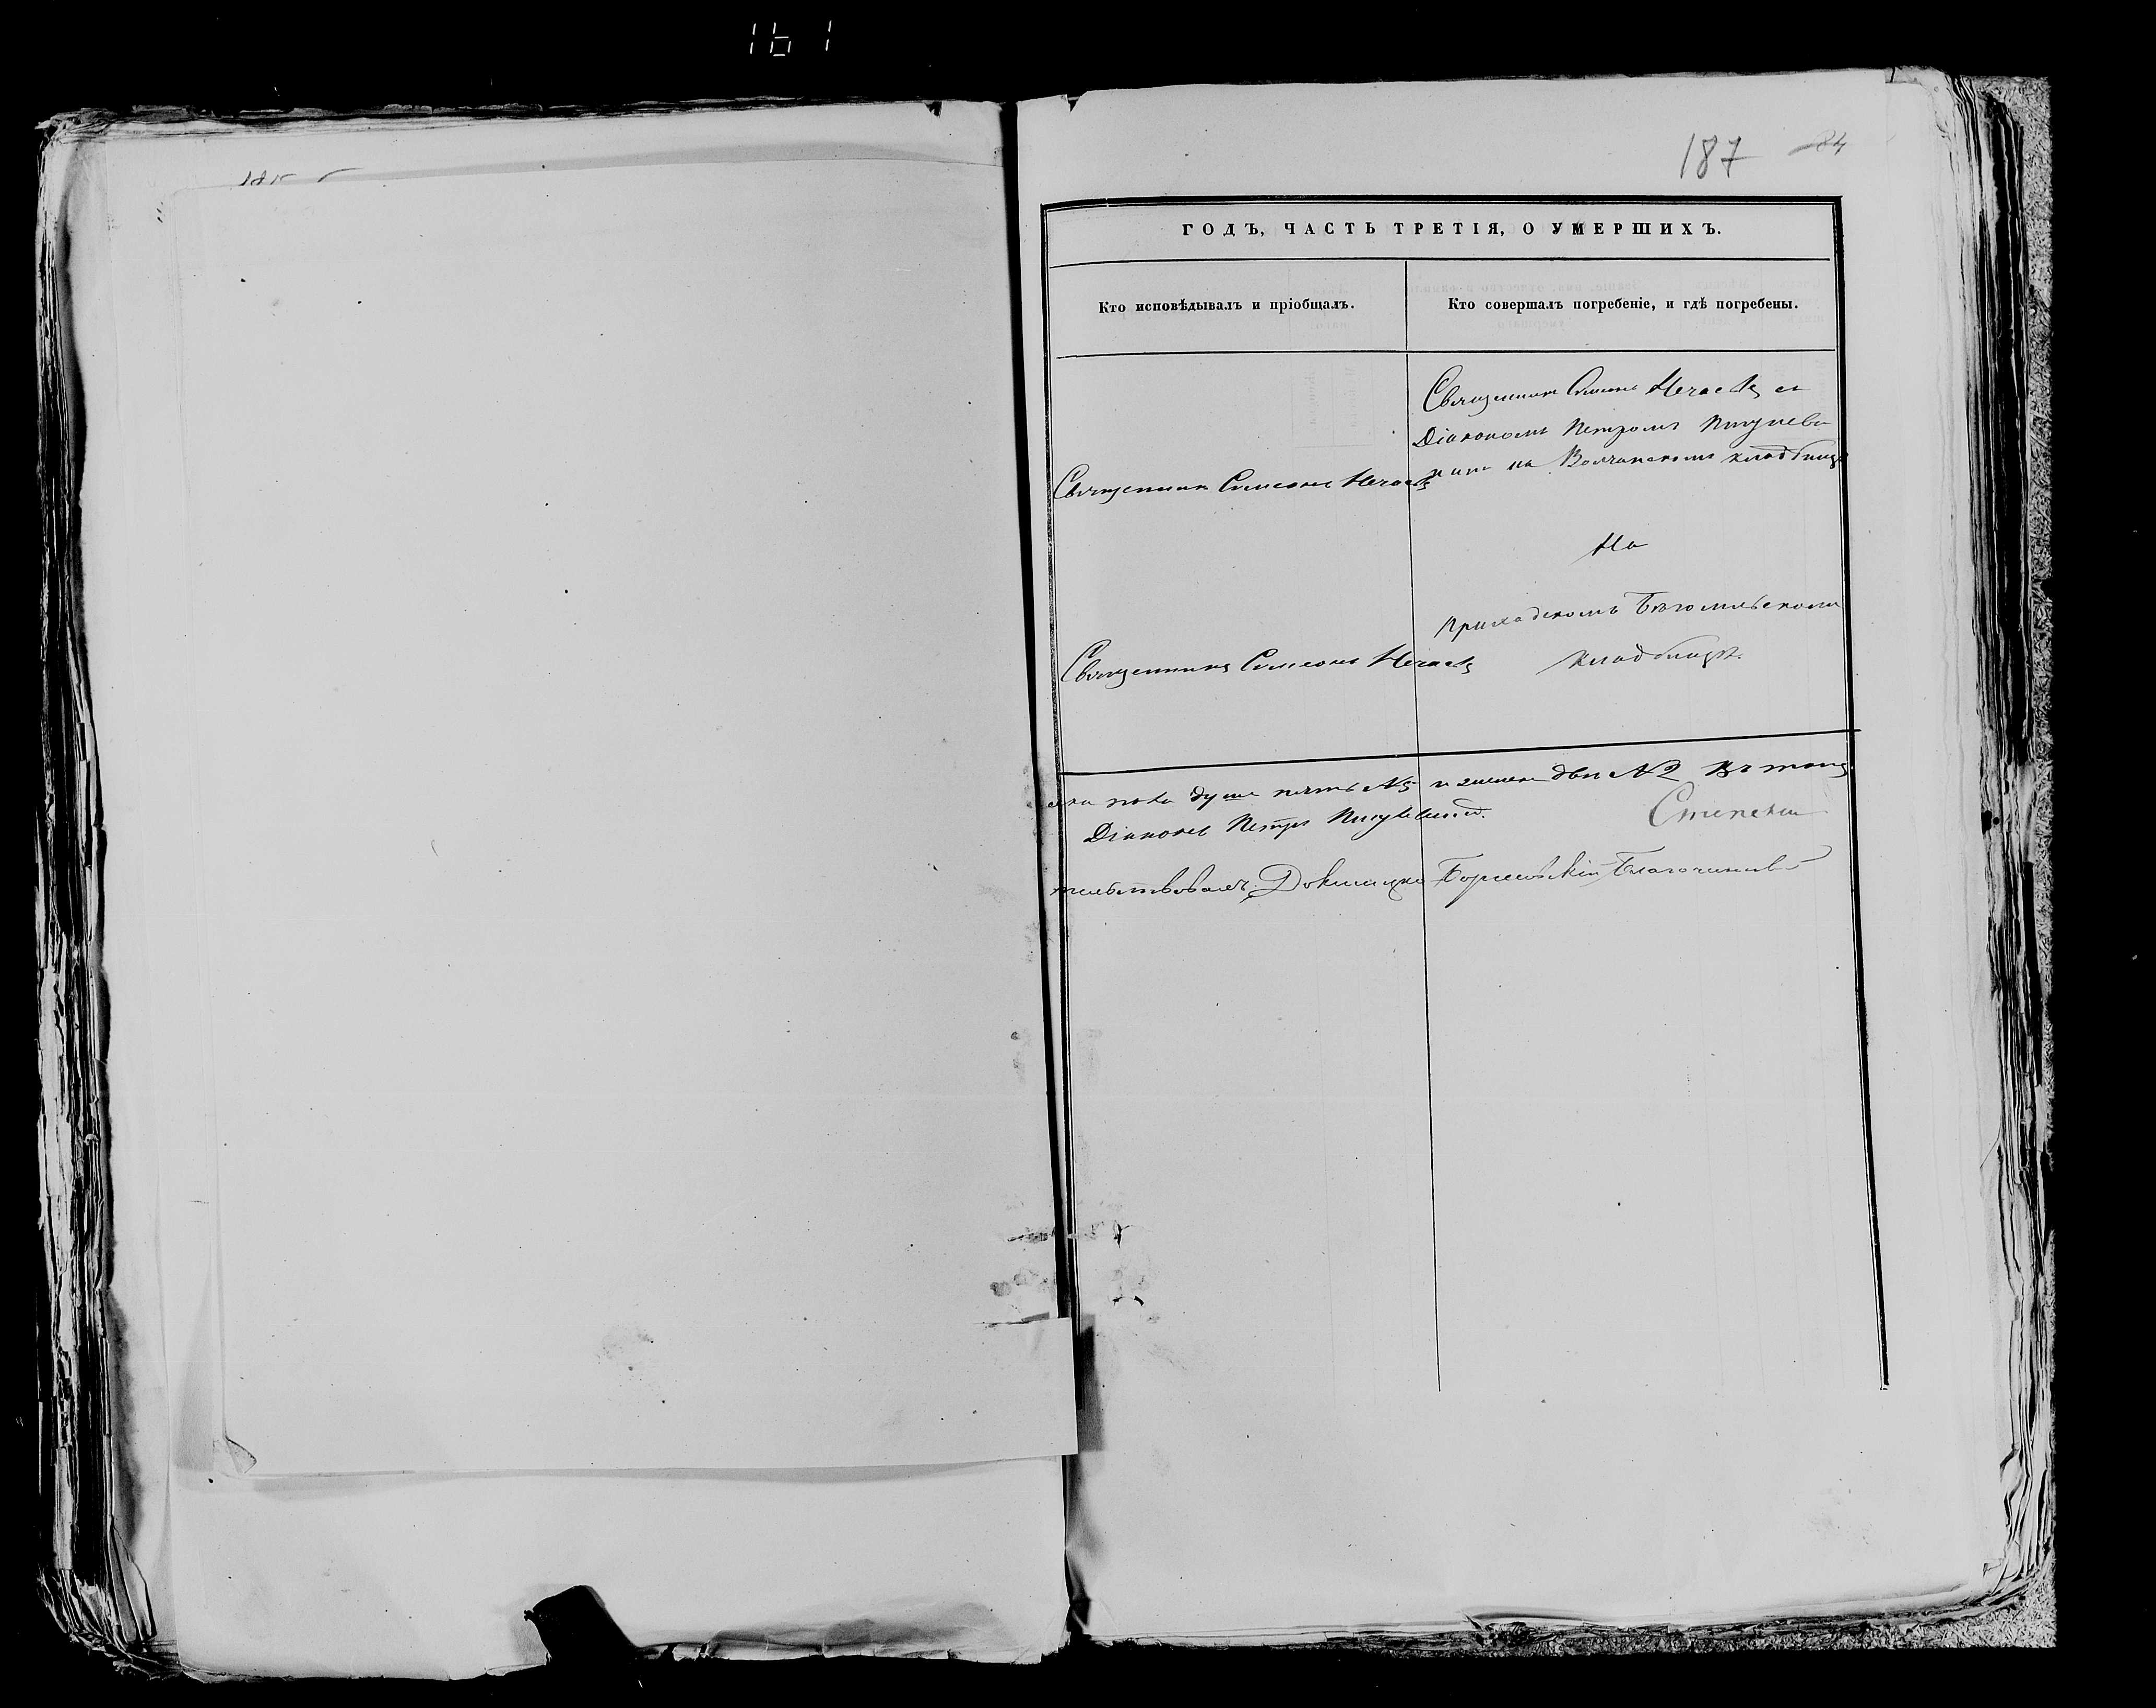 161
187 84
ГОДЪ, ЧАСТЬ ТРЕТІЯ, О УМЕРШИХЪ.
Кто исповѣдывалъ и пріобщалъ.
Кто совершалъ погребеніе, и гдѣ погребены.
Священникъ Симеонъ Нечаевъ
Священникъ Симеонъ Нечаевъ съ
Діакономъ Петромъ
на Волчанскомъ кладбищѣ
Священникъ Симеонъ Нечаевъ
На
приходскомъ Бѣгомльскомъ
кладбищѣ.
душъ пять №5 и женска двѣ №2 Въ томъ
Діаконъ Петръ
Докшицко Борисовскій Благочинный